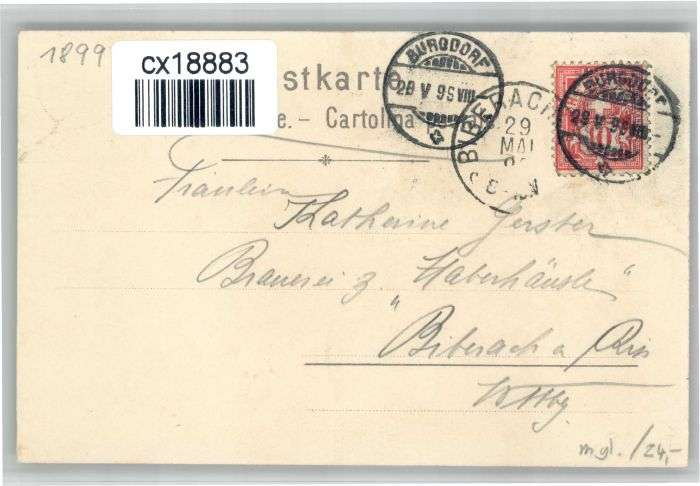 1899
cx18883
stkarte
e. - Cartolina
BURGDORF
28 V 99 VIII
BIBERACH
29
MAI
BURGDORF
10
Fräulein
Katharine Gerster
Brauerei z. „Haberhäusle“
Biberach a Riss
Wttbg.
mgl. /24,-